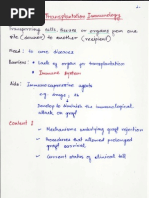 Transplantation Immunology
Transferring cells, tissues or organs from one
site (donor) to another (recipient)
Need : to cure disease
Barriers : • Lack of organs for transplantation
• Immune System
Aids : Immunosuppressive agents
e.g. drugs, to
Develop to diminish the immunological
attack on graft
Content :
✓ Mechanisms underlying graft rejection
✓ Procedures that allowed prolonged
graft survival
✓ Current status of clinical